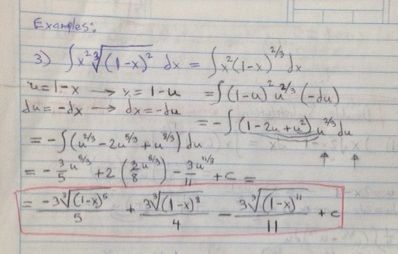 Examples:
3) ∫x² ∛(1-x)² dx = ∫x²(1-x)^2/3 dx
u=1-x → x=1-u = ∫(1-u)² u^2/3 (-du)
du=-dx → dx=-du = -∫(1-2u+u²) u^2/3 du
= -∫(u^2/3 - 2u^5/3 + u^8/3) du
= -3/5 u^5/3 + 2(3/8 u^8/3) - 3u^11/3 / 11 + c =
= -3∛(1-x)^5 / 5 + 3∛(1-x)^8 / 4 - 3∛(1-x)^11 / 11 + c